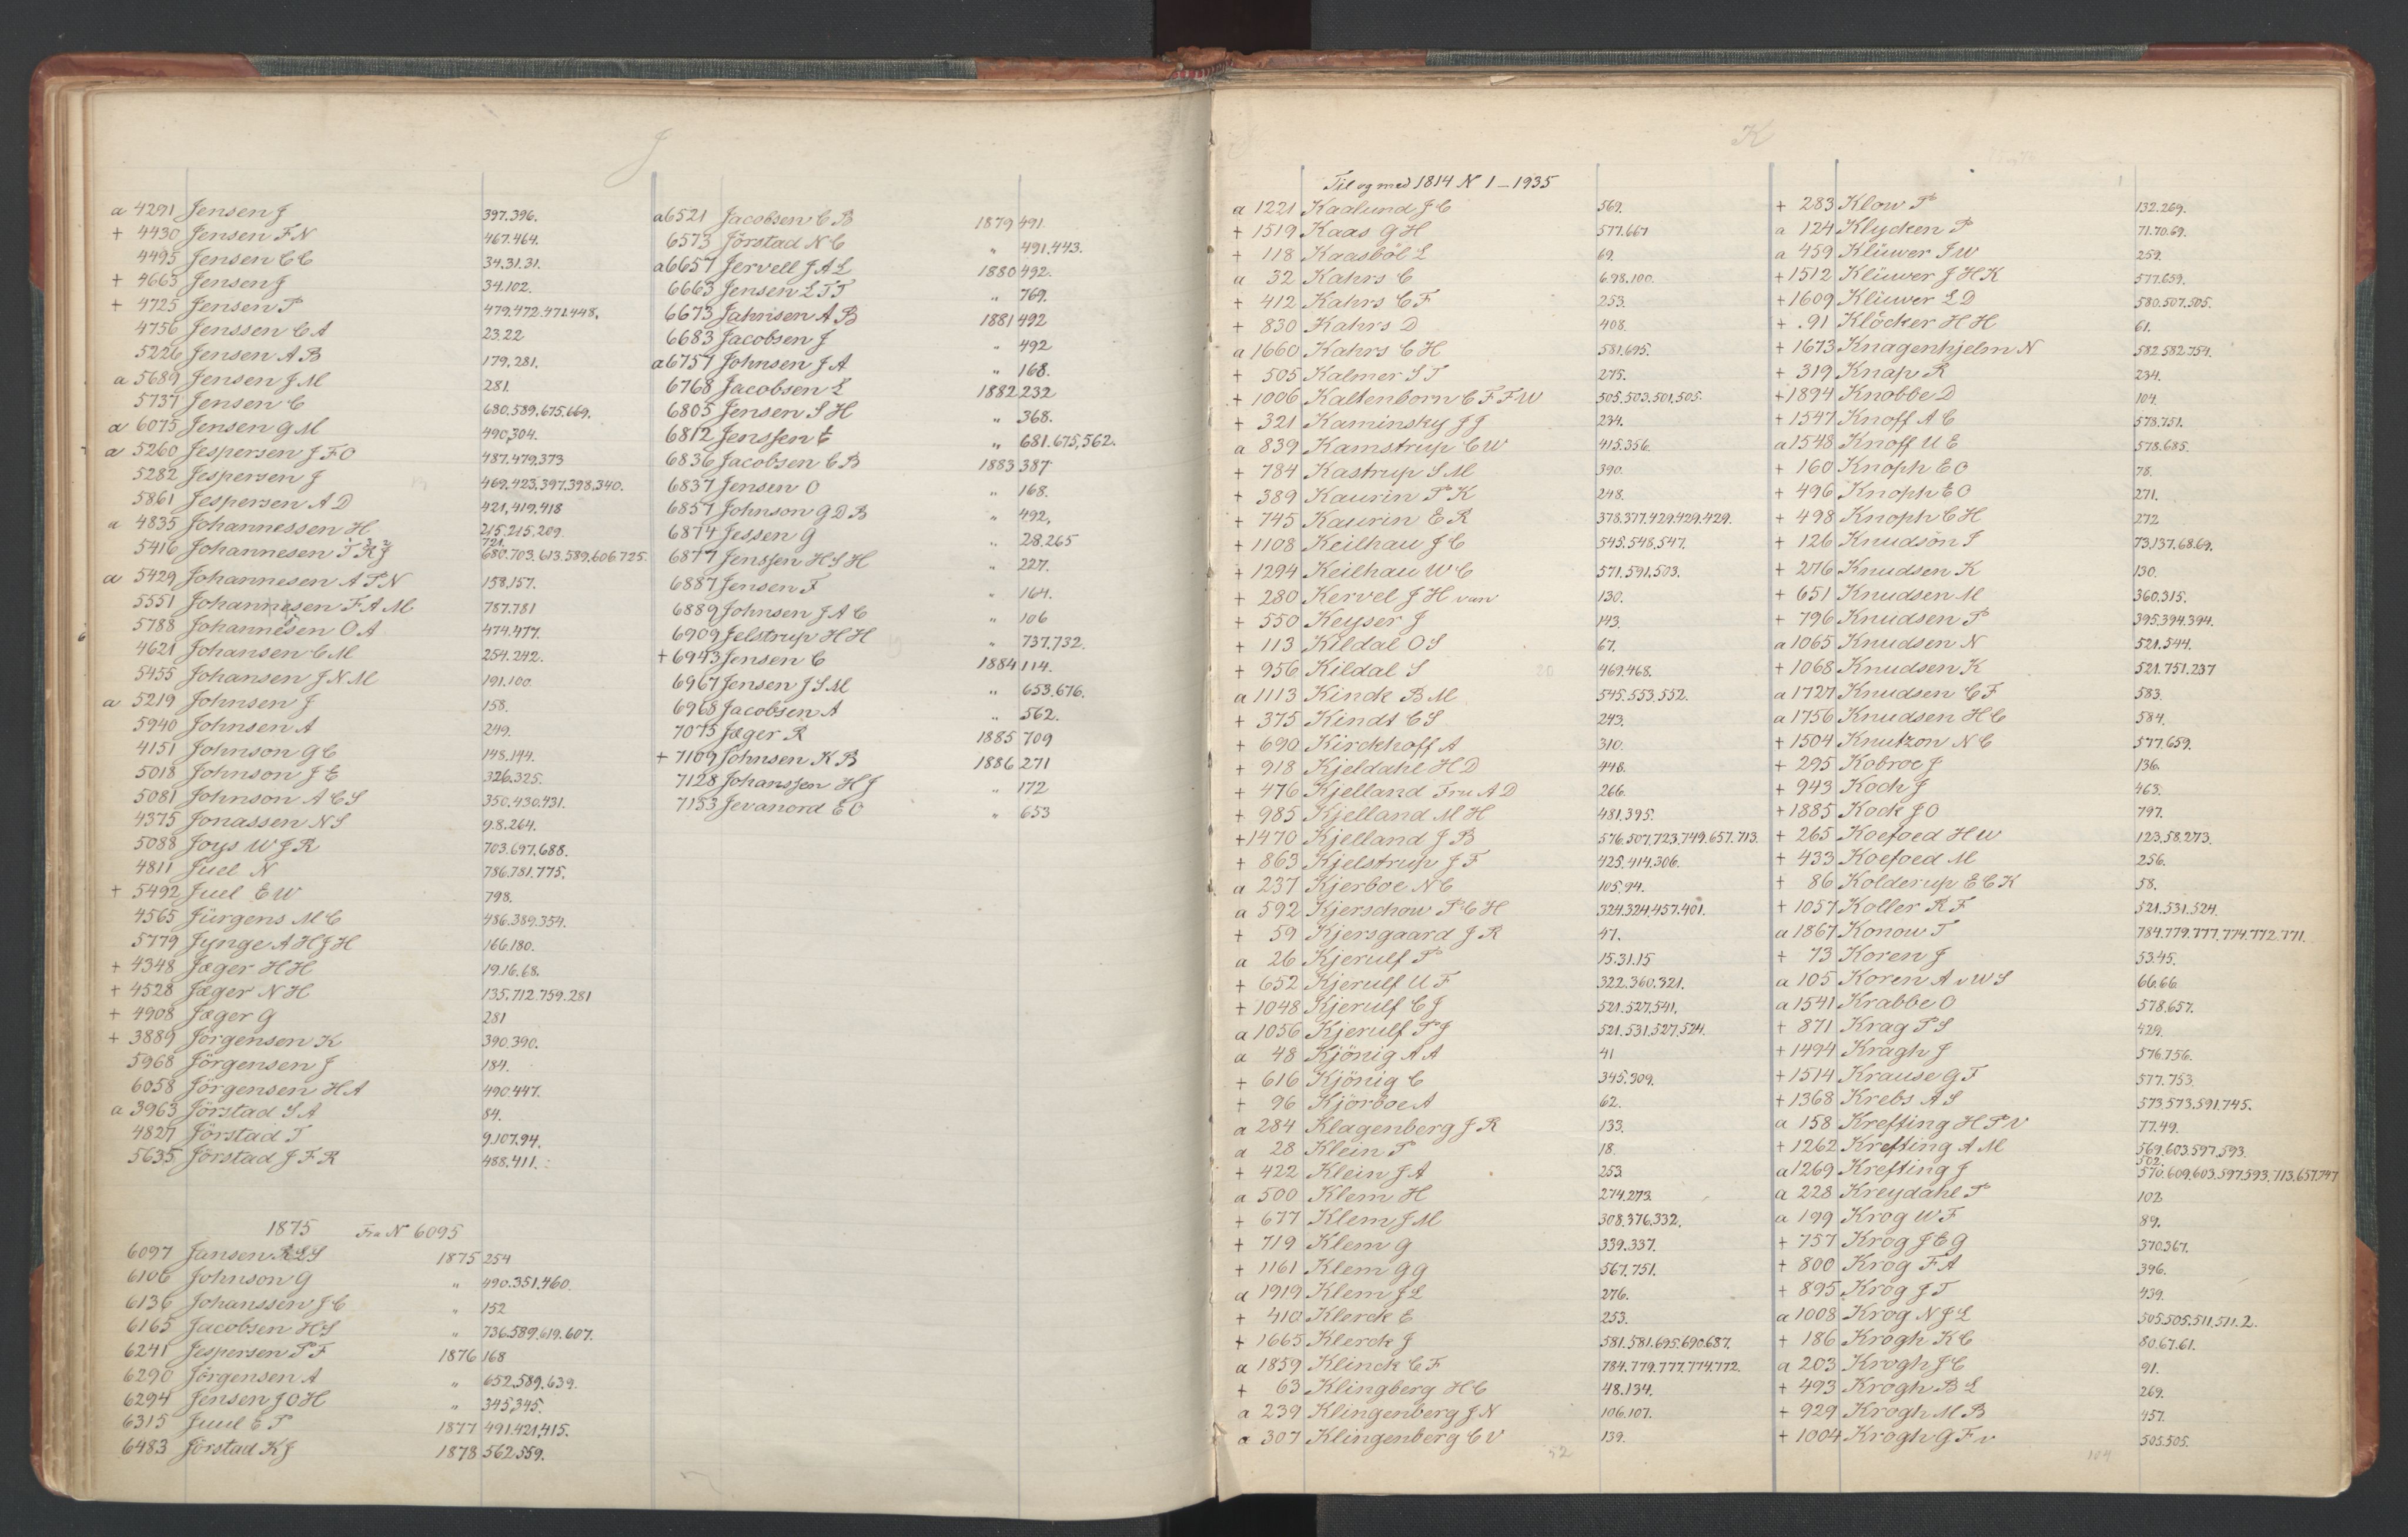 J
a 4291 Jensen J 397.396.
+ 4430 Jensen F N 467.464.
4495 Jensen C C 34.31.31.
+ 4663 Jensen J 34.102.
+ 4725 Jensen P 479.472.471.448.
4756 Jenssen C A 23.22
5226 Jensen A B 179,281.
a 5689 Jensen J M 281.
5737 Jensen C 680.589.675.669.
a 6075 Jensen G M 490,304.
a 5260 Jespersen J F O 487.479,373
5282 Jespersen J 469.423.397.398.340.
5861 Jespersen A D 421,419,418
a 4835 Johannessen H 215.215.209.
5416 Johannesen T R J 721. 680.703.613.589.606.725.
a 5429 Johannesen A P N 158,157.
5551 Johannesen F A M 787.781
5788 Johannesen O A 474.477.
4621 Johansen C M 254.242.
5455 Johansen J N M 191.100.
a 5219 Johnsen J 158.
5940 Johnsen A 249.
4151 Johnson G C 148.144.
5018 Johnson J E 326.325.
5081 Johnson A C S 350.430.431.
4375 Jonassen N S 9.8.264.
5088 Joys W J R 703.697.688.
4811 Juel N 786.781.775.
+ 5492 Juel E W 798.
4565 Jürgens M C 486.389.354.
5779 Jynge A H J H 166.180.
+ 4348 Jæger H H 19.16.68.
+ 4528 Jæger N H 135.712.759.281
+ 4908 Jæger G 281
+ 3889 Jörgensen K 390.390.
5968 Jörgensen J 184.
6058 Jörgensen H A 490.447.
a 3963 Jörstad S A 84.
4827 Jörstad T 9.107.94.
5635 Jörstad J F R 488.411.
1875 Fra N 6095
6097 Jansen R L S 1875 254
6106 Johnson G " 490.351.460.
6136 Johanssen J C " 152
6165 Jacobsen H S " 736.589.619.607.
6241 Jespersen P F 1876 168
6290 Jörgensen A " 652.589.639.
6294 Jensen J O H " 345,345.
6315 Juul E P 1877 491.421,415.
6483 Jörstad K J 1878 562.559.
a 6521 Jacobsen C B 1879 491.
6573 Jörstad N C " 491.443.
a 6657 Jervell J A L 1880 492.
6663 Jensen L T T " 769.
6673 Jahnsen A B 1881 492
6683 Jacobsen J " 492
a 6757 Johnsen J A " 168.
6768 Jacobsen L 1882 232
6805 Jensen S H " 368.
6812 Jenssen E " 681.675,562.
6836 Jacobsen C B 1883 387
6837 Jensen O " 168.
6857 Johnson G D B " 492,
6874 Jessen G " 28.265
6877 Jenssen H S H " 227.
6887 Jensen F " 164.
6889 Johnsen J A C " 106
6909 Jelstrup H H " 737,732.
+ 6943 Jensen C 1884 114.
6967 Jensen J S M " 653.676.
6968 Jacobsen A " 562.
7075 Jæger R 1885 709
+ 7109 Johnsen K B 1886 271
7128 Johanssen H J " 172
7153 Jevanord E O " 653
K
Til og med 1814 N 1–1935
a 1221 Kaalund J C 569.
+ 1519 Kaas G H 577.667
+ 118 Kaasböl L 69.
a 32 Kahrs C 6.98.100.
+ 412 Kahrs C F 253.
+ 830 Kahrs D 408.
a 1660 Kahrs C H 581.695.
+ 505 Kalmer S T 275.
+ 1006 Kaltenborn C F F W 505.503.501.505.
+ 321 Kaminsky J J 234.
a 839 Kamstrup C W 415.356.
+ 784 Kastrup S M 390.
+ 389 Kaurin P K 248.
+ 745 Kaurin E R 378.377.429.429.429.
+ 1108 Keilhau J C 545.548.547.
+ 1294 Keilhau W C 571.591.503.
+ 280 Kervel J H van 130.
+ 550 Keyser J 143.
+ 113 Kildal O S 67.
+ 956 Kildal S 469.468.
a 1113 Kinck B M 545.553.552.
+ 375 Kindt C S 243.
+ 690 Kirckhoff A 310.
+ 918 Kjeldahl H D 448.
+ 476 Kjelland Fru A D 266.
+ 985 Kjelland M H 481.395.
+ 1470 Kjelland J B 576.507.723.749.657.713.
+ 863 Kjelstrup J F 425.414.306.
a 237 Kjerboe N C 105.94.
a 592 Kjerschow P C H 324.324.457.401.
+ 59 Kjersgaard J R 47.
a 26 Kjerulf P 15.31.15
+ 652 Kjerulf U F 322.360.321.
+ 1048 Kjerulf C J 521.527.541.
a 1056 Kjerulf P J 521.531.527.524.
a 48 Kjönig A A 41
+ 616 Kjönig C 345.309.
+ 96 Kjörboe A 62.
a 284 Klagenberg J R 133.
a 28 Klein P 18.
+ 422 Klein J A 253.
a 500 Klem H 274.273.
+ 677 Klem J M 308.376.332.
+ 719 Klem G 339.337.
+ 1161 Klem G G 567.751.
a 1919 Klem J L 276.
+ 410 Klerck E 253.
+ 1665 Klerck J 581.581.695.690.687.
a 1859 Klinck C F 784.779.777.774.772.
+ 63 Klingberg H C 48.134.
a 239 Klingenberg J N 106.107.
a 307 Klingenberg C V 139.
52
+ 283 Klow P 132.269.
a 124 Klycken P 71.70.69.
a 459 Klüwer F W 259.
+ 1512 Klüwer J H K 577.659.
+ 1609 Klüwer L D 580.507.505.
+ 91 Klöcker H H 61.
+ 1673 Knagenhjelm N 582.582.754.
+ 319 Knap R 234.
+ 1894 Knobbe D 104.
+ 1547 Knoff A C 578.751.
a 1548 Knoff U E 578.685.
+ 160 Knoph E O 78.
+ 496 Knoph E O 271.
+ 498 Knoph C H 272
+ 126 Knudsön F 73.137.68.69.
+ 276 Knudsen K 130.
+ 651 Knudsen M 360.315.
+ 796 Knudsen P 395.394.394.
a 1065 Knudsen N 521.544.
+ 1068 Knudsen K 521.751.237
a 1727 Knudsen C F 583.
a 1756 Knudsen H C 584.
+ 1504 Knutzon N C 577.659.
+ 295 Kobroe J 136.
+ 943 Koch J 463.
+ 1885 Kock J O 797.
+ 265 Koefoed H W 123.58.273.
+ 433 Koefoed M 256.
+ 86 Kolderup E C K 58.
+ 1057 Koller R F 521.531.524.
a 1867 Konow T 784.779.777.774.772.771.
+ 73 Koren J 53.45.
a 105 Koren A v W S 66.66.
a 1541 Krabbe O 578.657.
+ 871 Krag P S 429.
+ 1494 Kragh J 576.756.
+ 1514 Krause G F 577.753.
+ 1368 Krebs A S 573.573.591.745.
a 158 Krefting H P V 77.49.
+ 1262 Krefting A M 569.603.597.593.
a 1269 Krefting J 502. 570.609.603.597.593.713.657.747
a 228 Kreydahl P 102
a 199 Krog W F 89.
+ 757 Krog J E G 370.367.
+ 800 Krog F A 396.
+ 895 Krog J T 439.
a 1008 Krog N J L 505.505.511.511.2.
+ 186 Krogh K C 80.67.61.
a 203 Krogh J C 91.
+ 493 Krogh B L 269.
+ 929 Krogh M B 457.
+ 1004 Krogh G F v 505.505.
104